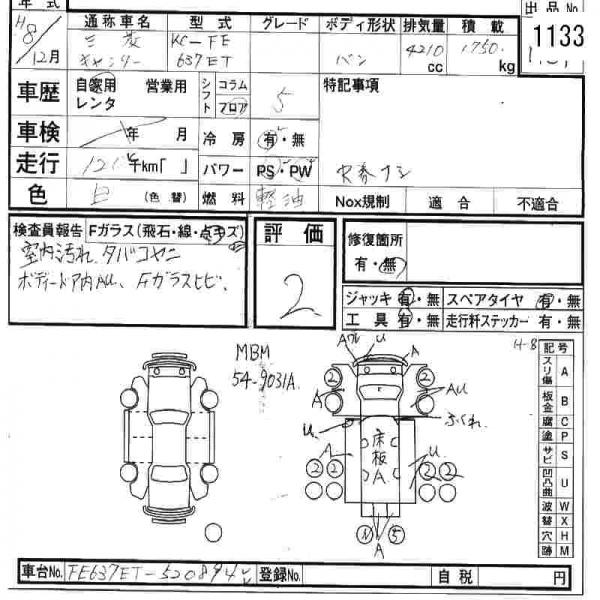 年式 出品No.
H8/12月 通称車名 型式 グレード ボディ形状 排気量 積載 1133
三菱 KC-FE バン 4210 1750
キャンター 637ET cc kg
車歴 自家用 営業用 シフト コラム 5 特記事項
レンタ フロア
車検 年 月 冷房 有・無
走行 121 千km「 」 パワー PS・PW
色 白 (色替) 燃料 軽油 Nox規制 適合 不適合
検査員報告 Fガラス(飛石・線・点キズ) 評価 修復箇所
室内汚れ、タバコヤニ 有・無
ボディードア内AU、FガラスヒビI 2
ジャッキ 有・無 スペアタイヤ 有・無
工具 有・無 走行料ステッカー 有・無
MBM
54-9031A
H-8
アル U A
2 2
A AU
U ふくれ
U
A 床板A U
2 2 2 2
N 5
A
記号
スリ傷 A
板金 B
腐 C
塗 P
サビ S
凹凸曲 U
波 W
替 X
穴 H
跡 M
車台No. FE637ET-520894 登録No. 自税 円